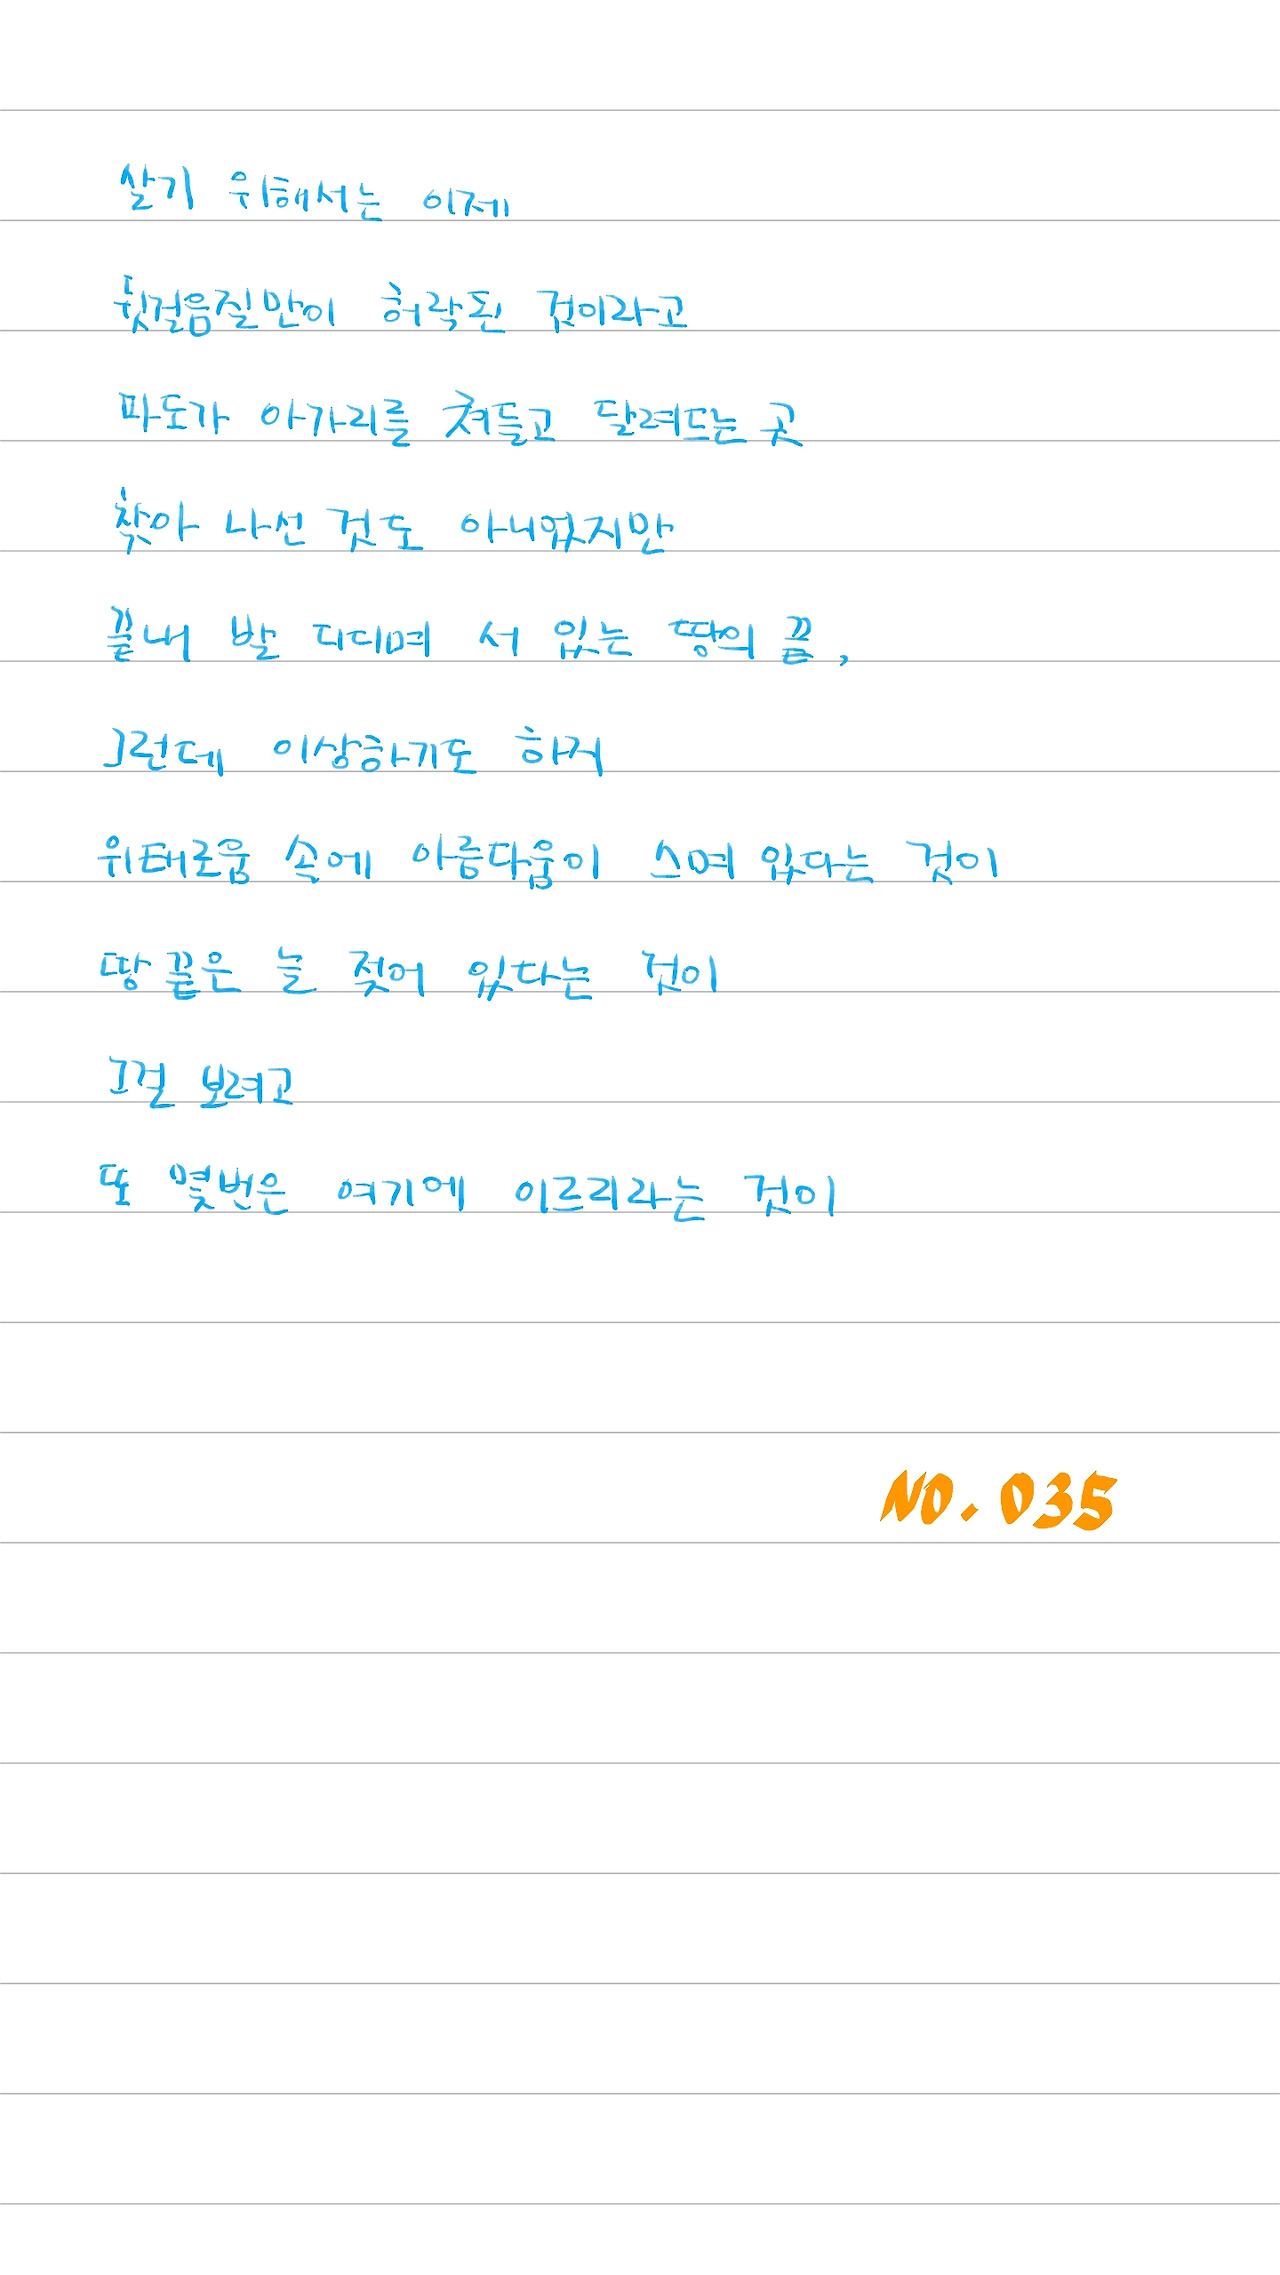 살기 위해서는 이제
뒷걸음질만이 허락된 것이라고
파도가 아가리를 쳐들고 달려드는 곳
찾아 나선 것도 아니었지만
끝내 발 디디며 서 있는 땅의 끝,
그런데 이상하기도 하지
위태로움 속에 아름다움이 스며 있다는 것이
땅끝은 늘 젖어 있다는 것이
그걸 보려고
또 몇번은 여기에 이르리라는 것이
NO. 035